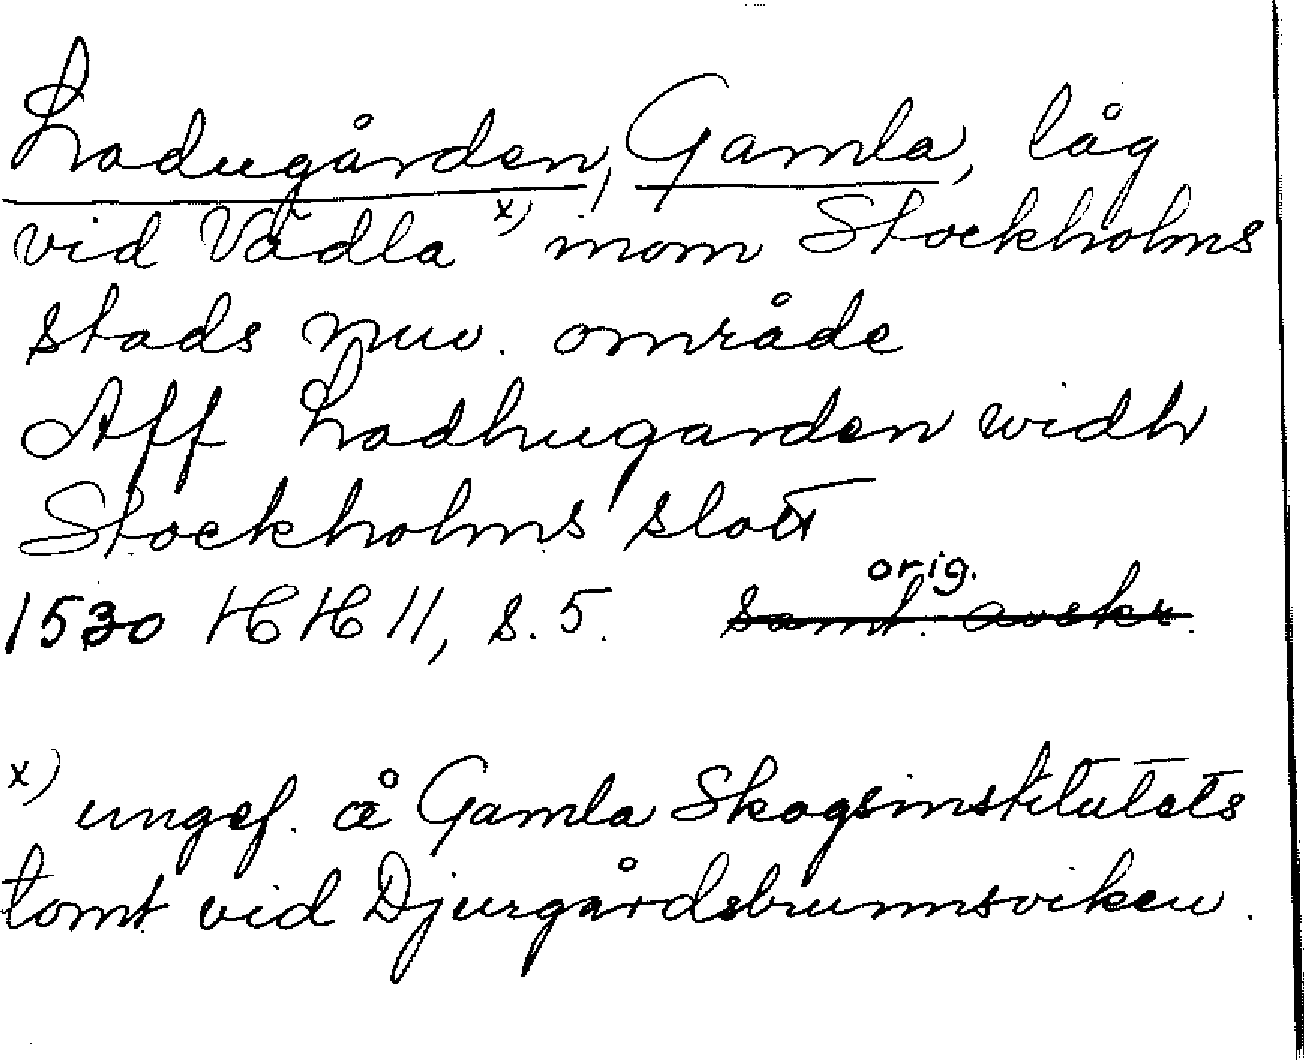 Ladugården, Gamla, låg
vid Vädla x) inom Stockholms
stads nuv. område
Aff Ladhugarden widh
Stockholms slott
orig.
1530 HH 11, s. 5. saml. avskr.
x) ungef. å Gamla Skogsinstitutets
tomt vid Djurgårdsbrunnsviken.